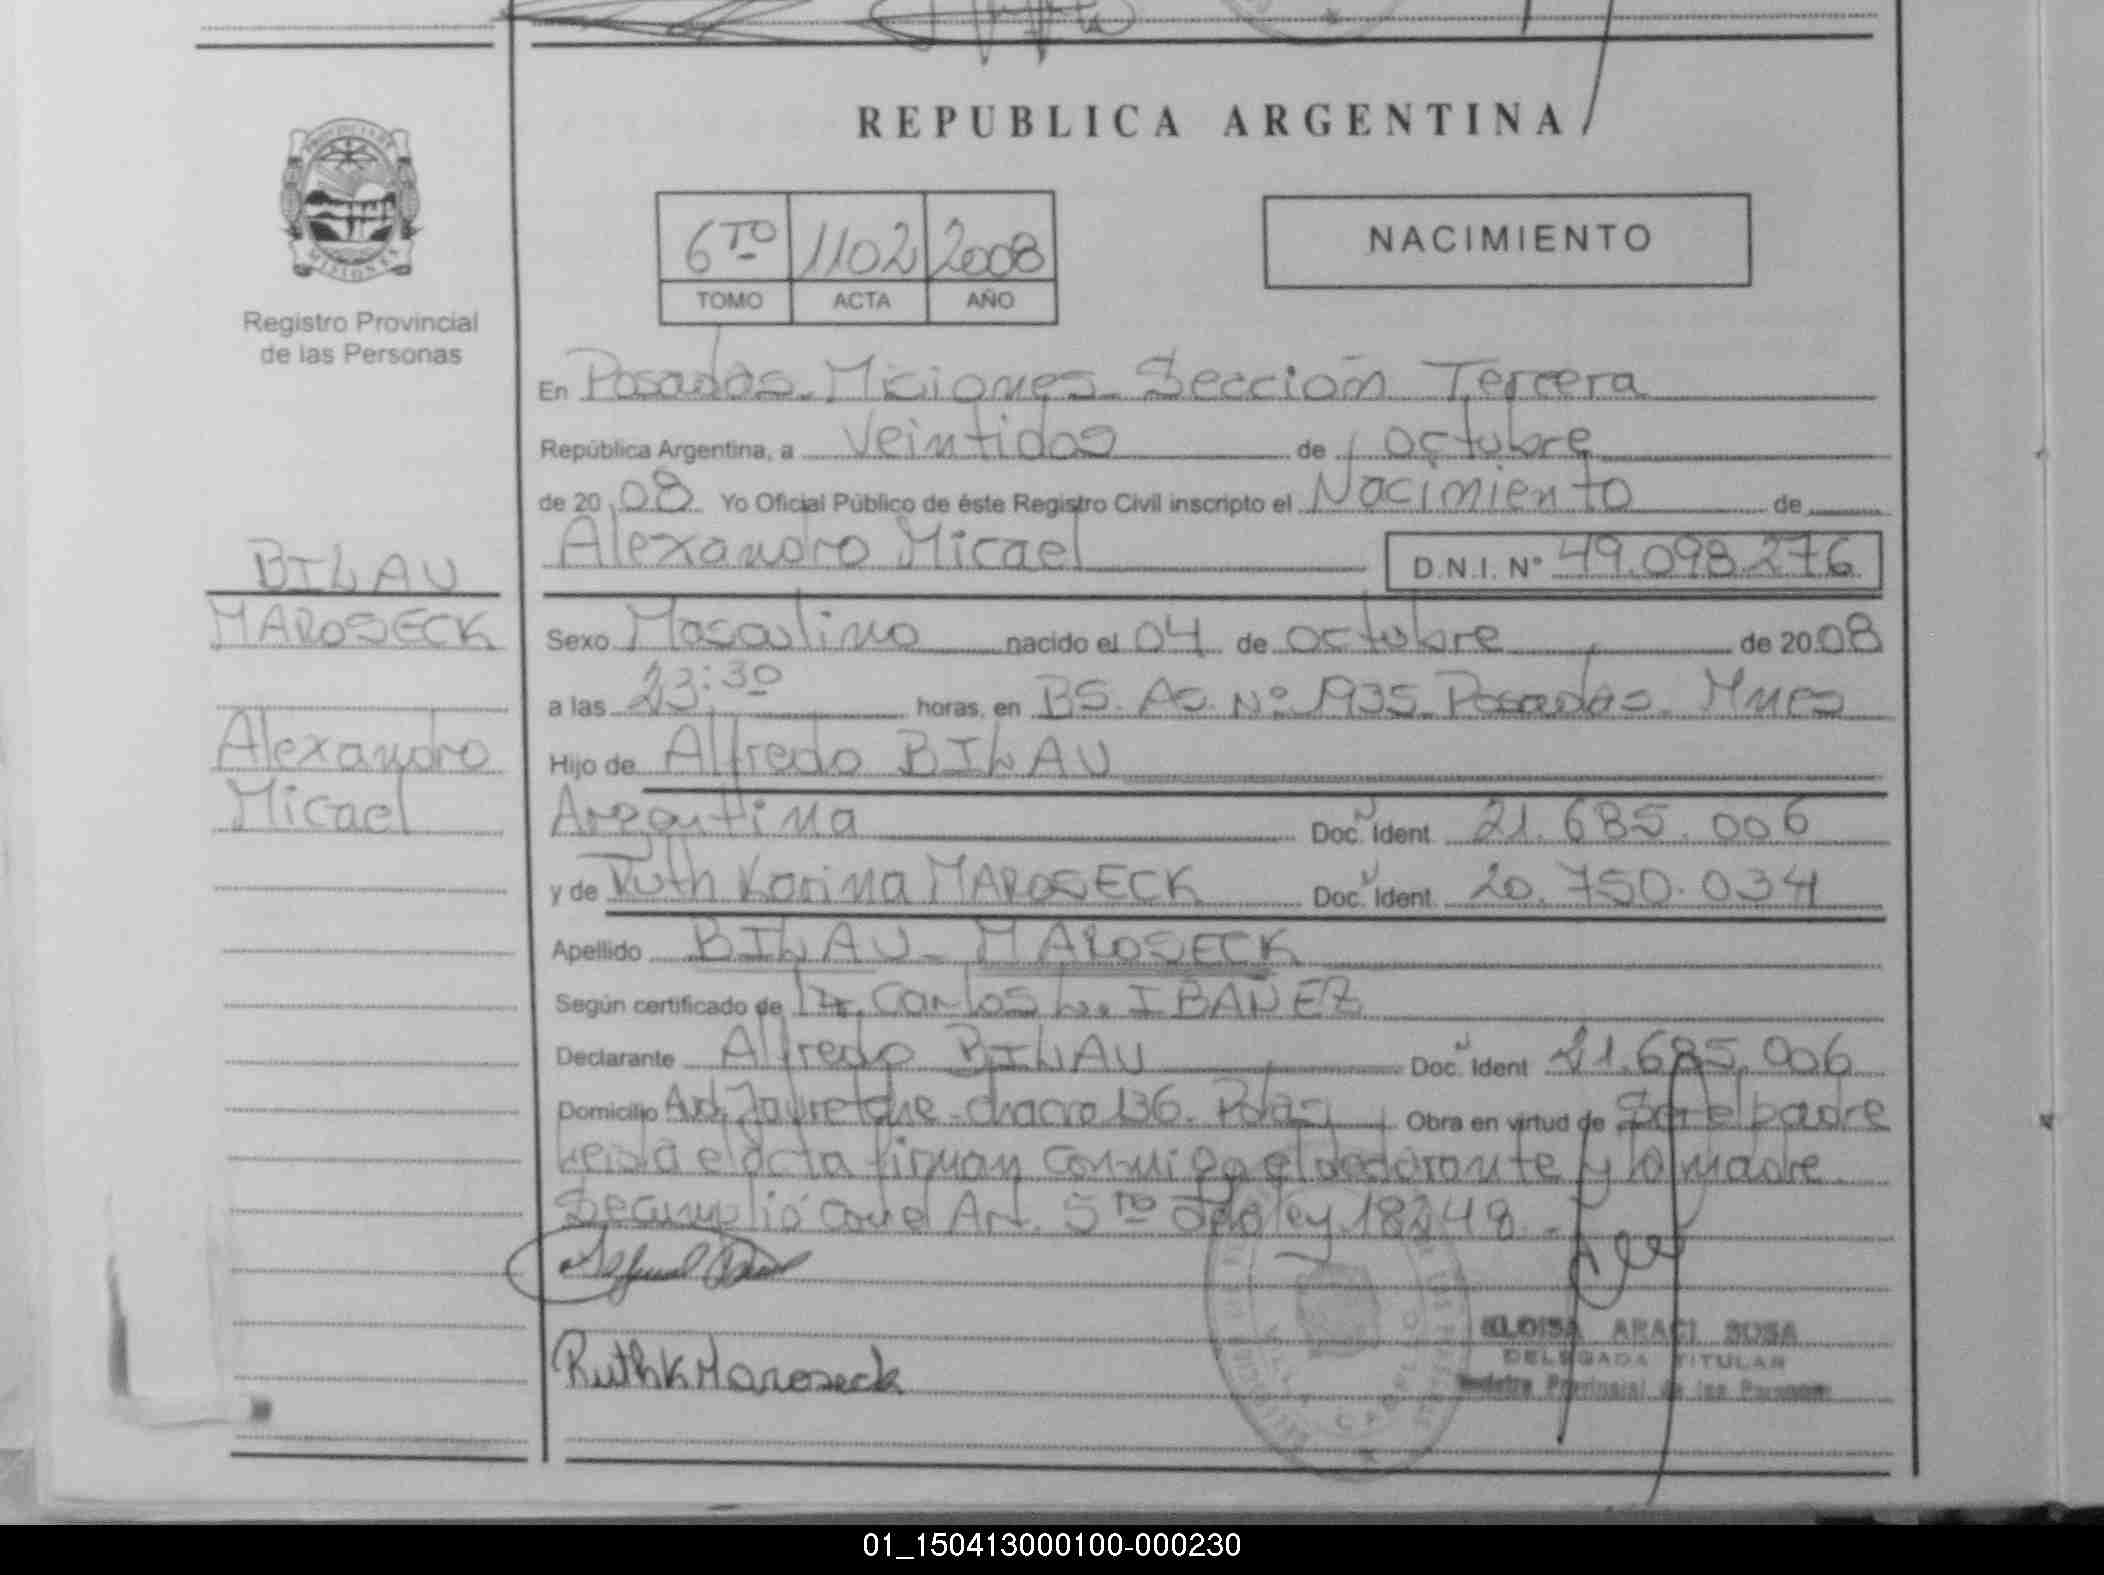 REPUBLICA ARGENTINA
PROVINCIA DE
MISIONES
Registro Provincial
de las Personas
6TO 1102 2008
TOMO ACTA AÑO
NACIMIENTO
En Posadas Misiones Sección Tercera
República Argentina, a Veintidos de octubre
de 2008 Yo Oficial Público de éste Registro Civil inscripto el Nacimiento de
Alexandro Micael D.N.I. Nº 49.098.276
BILAU
MAROSECK
Alexandro
Micael
Sexo Masculino nacido el 04 de octubre de 2008
a las 23:30 horas, en BS. AS. Nº 1935 Posadas. Mnes
Hijo de Alfredo BILAU
Argentina Doc. Ident. 21.685.006
y de Ruth Karina MAROSECK Doc. Ident. 20.750.034
Apellido BILAU - MAROSECK
Según certificado de Carlos L. IBAÑEZ
Declarante Alfredo BILAU Doc. Ident 21.685.006
Domicilio Jauretche - chacra 136. Pdas Obra en virtud de Ser el padre
Leida el acta firman conmigo el declarante y la madre
Se cumplió con el Art. 5to de la ley 18248.-
Ruth K Maroseck
ELOISA ARACI SOSA
DELEGADA TITULAR
Registro Provincial de las Personas
01_150413000100-000230